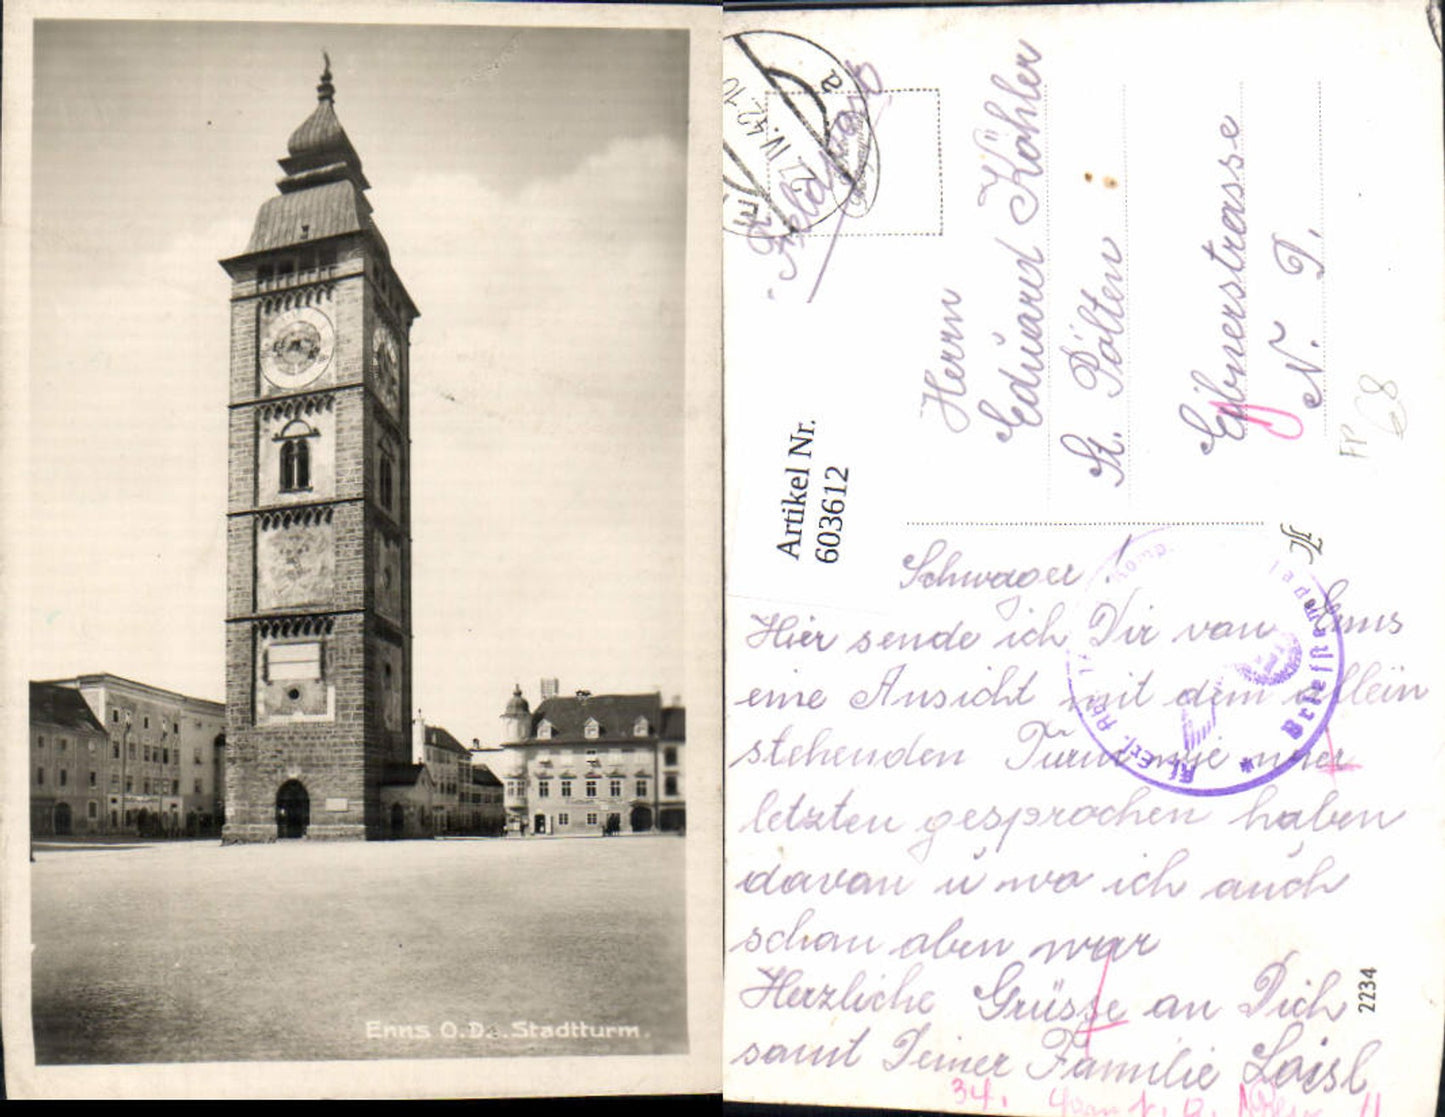 Enns O.D. Stadtturm.
Feldpost
22 IV. 42. 10
a
Herrn
Eduard Köhler
St. Pölten
Eibnerstrasse
N. D.
FP
68
Artikel Nr.
603612
Schwager!
Hier sende ich Dir von Enns
eine Ansicht mit dem allein
stehenden Turm wie wir
letzten gesprochen haben
davon u wo ich auch
schon oben war
Herzliche Grüsse an Dich
samt Deiner Familie Loisl
Briefstempel
2234
34.